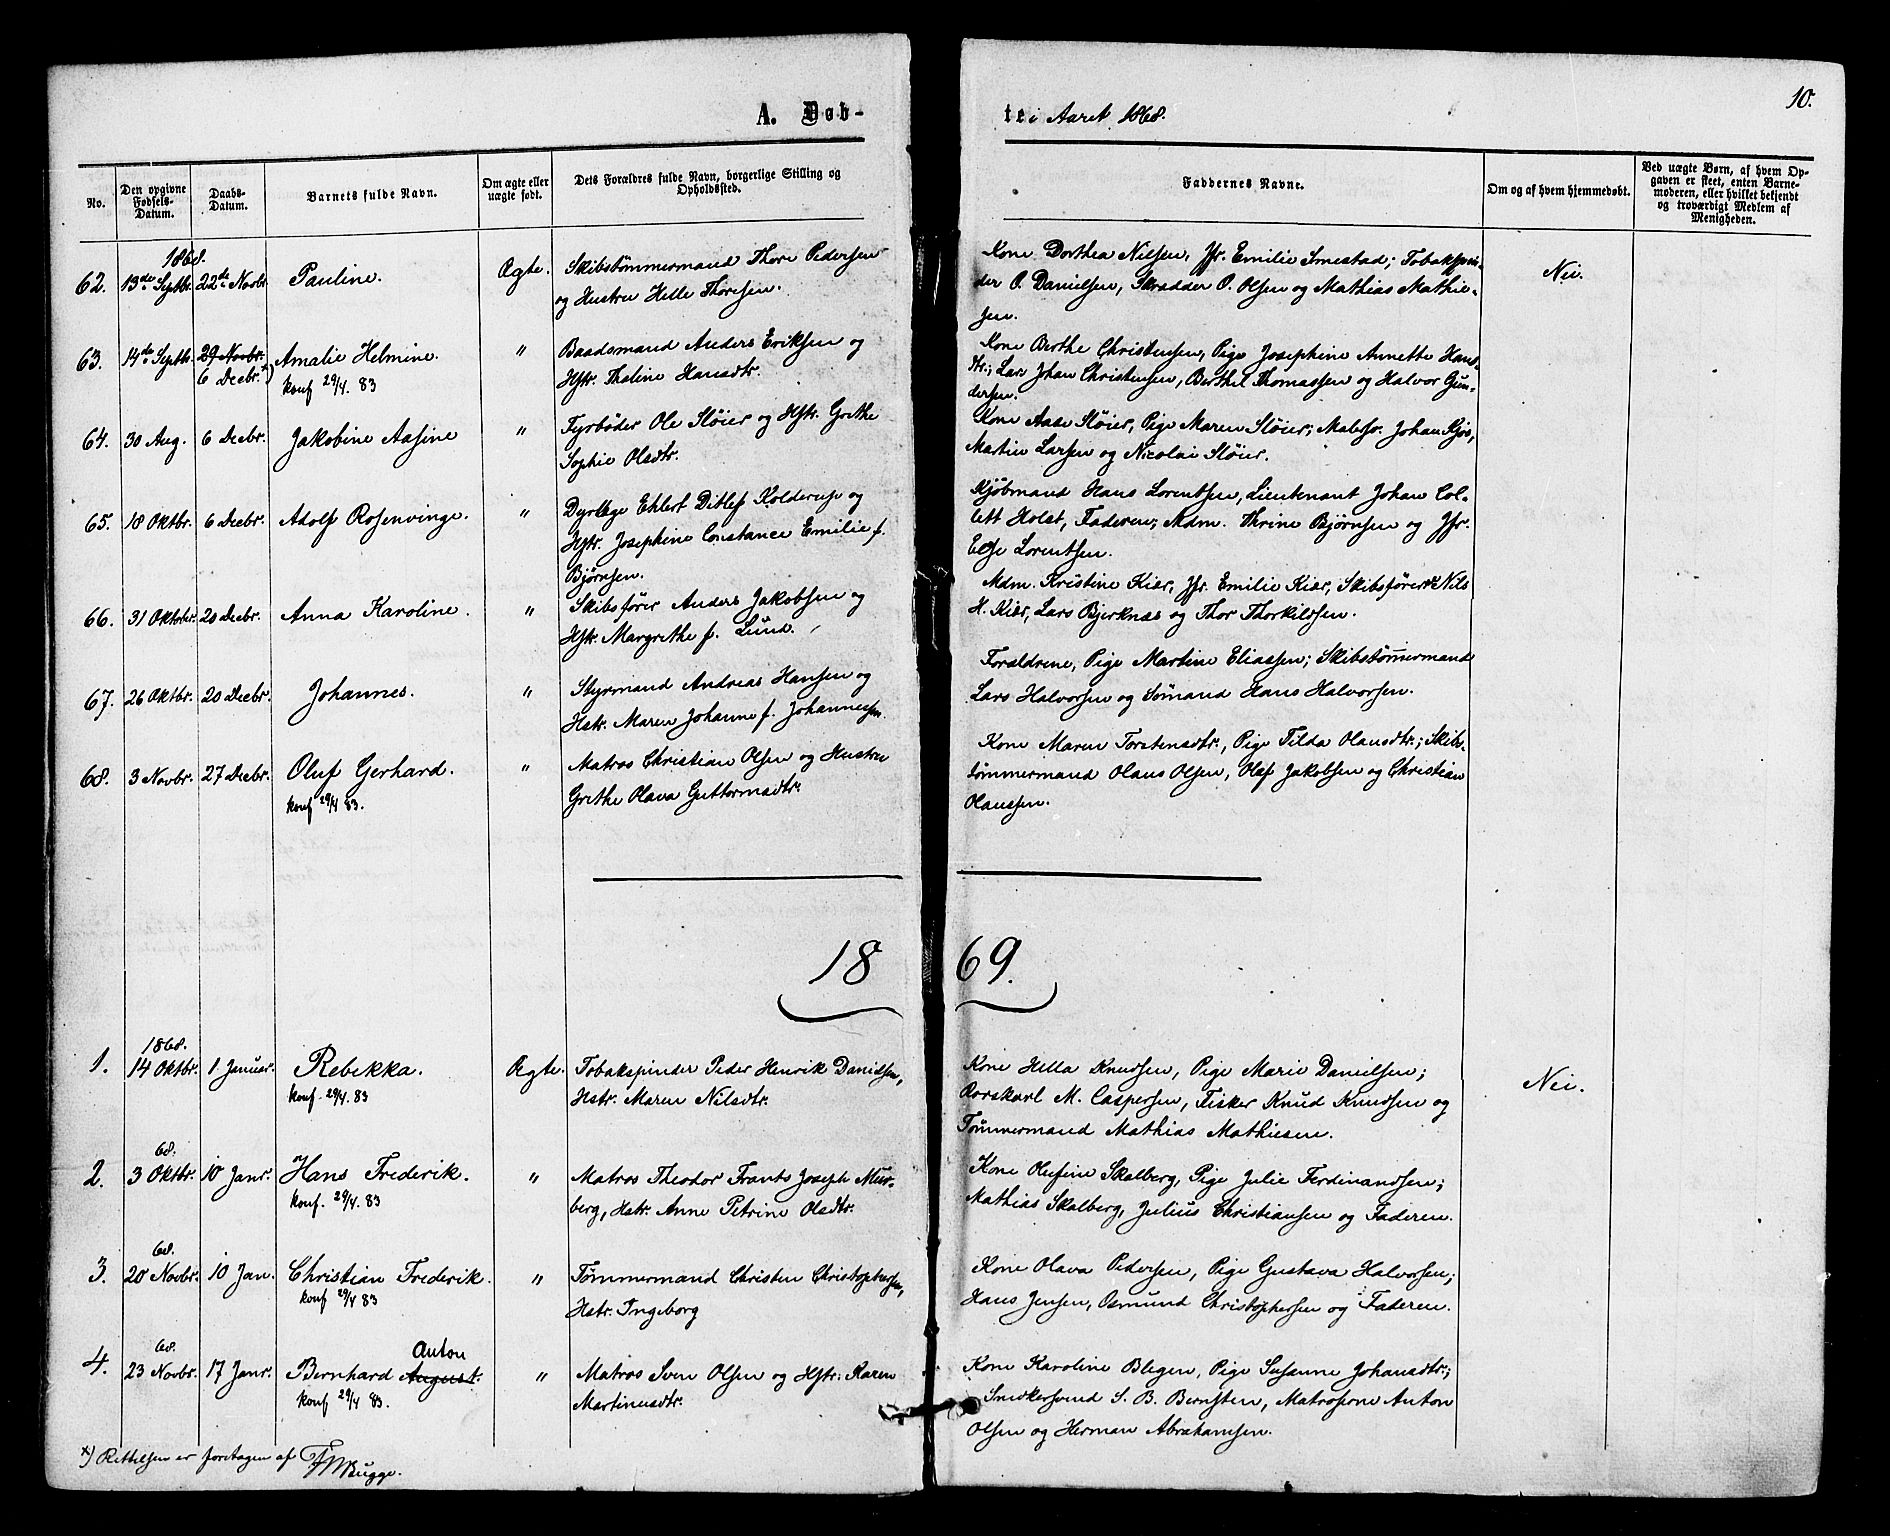 10.
A. Døb-
te i Aaret 1868.
No.
Den opgivne Fødsels-Datum.
Daabs-Datum.
Barnets fulde Navn.
Om ægte eller uægte født.
Dets Forældres fulde Navn, borgerlige Stilling og Opholdssted.
Faddernes Navne.
Om og af hvem hjemmedøbt.
Ved uægte Børn, af hvem Op-
gaven er skeet, enten Barne-
moderen, eller hvilket bekjendt
og troværdigt Medlem af
Menigheden.
1868.
62. 13de Septbr. 22de Novbr. Pauline. Ægte. Skibstømmermand Thore Pedersen
og Hustru Helle Thoresen.
Kone Dorthea Nilsen, Jfr. Emilie Smestad; Tobakspin-
der O. Danielsen, Skrædder O. Olsen og Mathias Mathie-
sen.
Nei.
63. 14de Septb. 29 Novbr. Amalie Helmine. " Baadsmand Anders Eriksen og
6 Decbr. *)
konf 29/4. 83
Hstr. Thaline Hansdtr.
Kone Berthe Christensen, Pige Josephine Annette Hans-
tr.; Lars Johan Christensen, Berthel Thomassen og Halvor Gun-
dersen.
64. 30 Aug. 6 Decbr. Jakobine Aasine " Fyrbøder Ole Sløier og Hstr. Grethe
Sophie Olsdtr.
Kone Aase Sløier, Pige Maren Sløier; Matrso. Johan Gjøs,
Martin Larsen og Nicolai Sløier.
65. 18 Oktbr. 6 Decbr. Adolf Rosenvinge. " Dyrlæge Ehlert Ditlef Kolderup og
Hstr. Josephine Constance Emilie f.
Bjørnsen.
Kjøbmand Hans Lorentsen, Lieutenant Johan Col-
lett Holst, Faderen; Mdm. Thrine Bjørnsen og Jfr.
Else Lorentsen.
66. 31 Oktober. 20 Decbr. Anna Karoline. " Skibsfører Anders Jakobsen og
Hstr. Margrethe f. Lund.
Mdm. Kristine Kiær, Jfr. Emilie Kiær, Skibsførerne Nils
H. Kiær, Lars Bjerknæs og Thor Thorkildsen.
67. 26 Oktbr. 20 Decbr. Johannes. " Styrmand Andreas Hansen og
Hstr. Maren Johanne f. Johannessen.
Forældrene, Pige Martine Eliassen; Skibstømmermand
Lars Halvorsen og Sømand Hans Halvorsen.
68. 3 Novbr. 27 Decbr. Oluf Gerhard. " Matros Christian Olsen og Hustru
konf 29/4 83.
Grethe Olava Guttormsdtr.
Kone Maren Torstensdtr., Pige Tilda Olausdtr.; Skibs-
tømmermand Olaus Olsen, Olaf Jakobsen og Christian
Olaussen.
1869.
1868.
1. 14 Oktbr. 1 Januar. Rebekka. Ægte. Tobakspinder Peder Henrik Danielsen,
konf. 29/4. 83
Hstr. Maren Nilsdtr.
Kone Hella Knudsen, Pige Marie Danielsen;
Rorskarl M. Caspersen, Fisker Knud Knudsen og
Tømmermand Mathias Mathiesen.
Nei.
68.
2. 3 Oktbr. 10 Janr. Hans Frederik. " Matros Theodor Frants Joseph Mur-
konf. 29/4. 83
berg, Hstr. Anne Petrine Olsdtr.
Kone Olufine Skalberg, Pige Julie Ferdinandsen;
Mathias Skalberg, Julius Christiansen og Faderen.
68.
3. 20 Novbr. 10 Jan. Christian Frederik. " Tømmermand Christen Christophersen,
konf 29/4 83
Hstr. Ingeborg
Kone Olava Pedersen, Pige Gustava Halvorsen;
Hans Jensen, Osmund Christophersen og Faderen.
68.
Anton
4. 23 Novbr. 17 Janr. Bernhard August. " Matros Sven Olsen og Hstr. Karen
konf 29/4 83.
Martinusdtr.
Kone Karoline Blegen, Pige Susanne Johansdtr;
Snedkersvend S. B. Berntsen, Matroserne Anton
Olsen og Herman Abrahamsen.
*) Rettelsen er foretagen af Bugge.